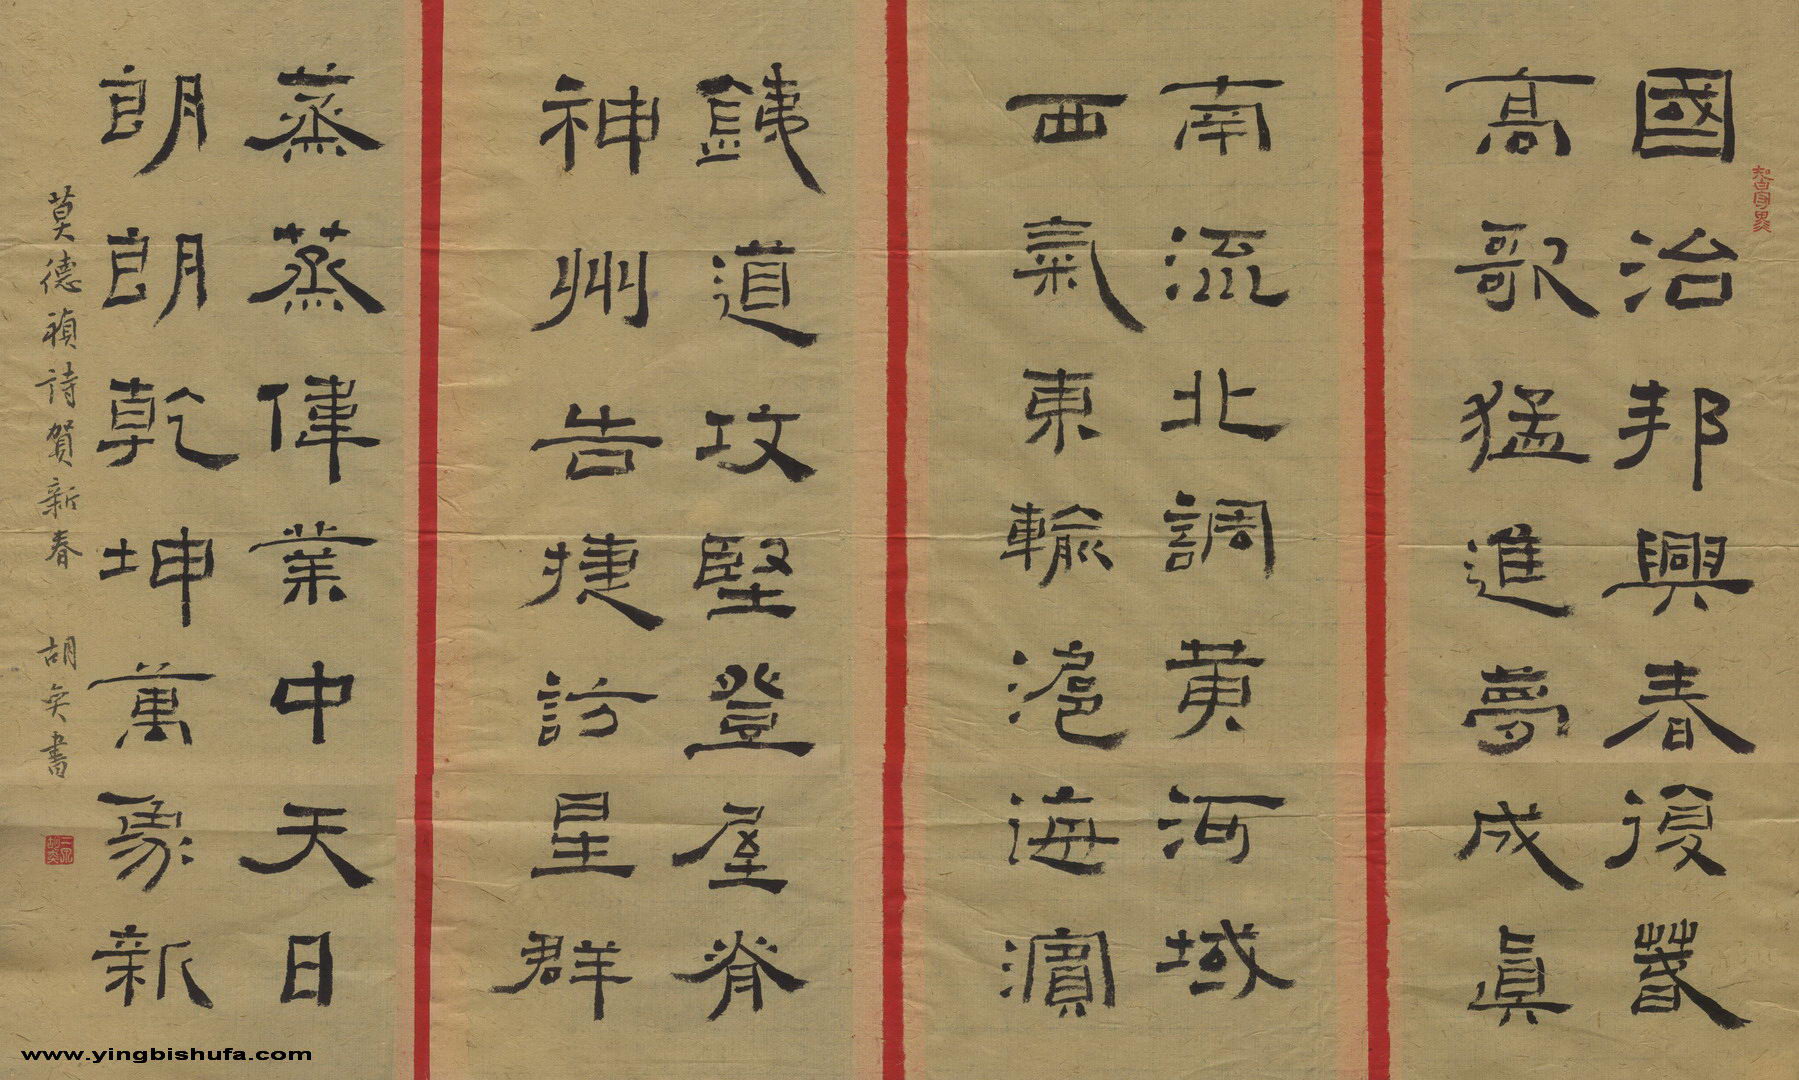 國治邦興春復萅
高歌猛進夢成眞
南流北調黃河域
西氣東輸滬海濱
鐵道攻堅登屋脊
神州告捷訪星群
蒸蒸偉業中天日
朗朗乾坤萬象新
莫德禎詩賀新春 胡奕書
知白守黑
www.yingbishufa.com